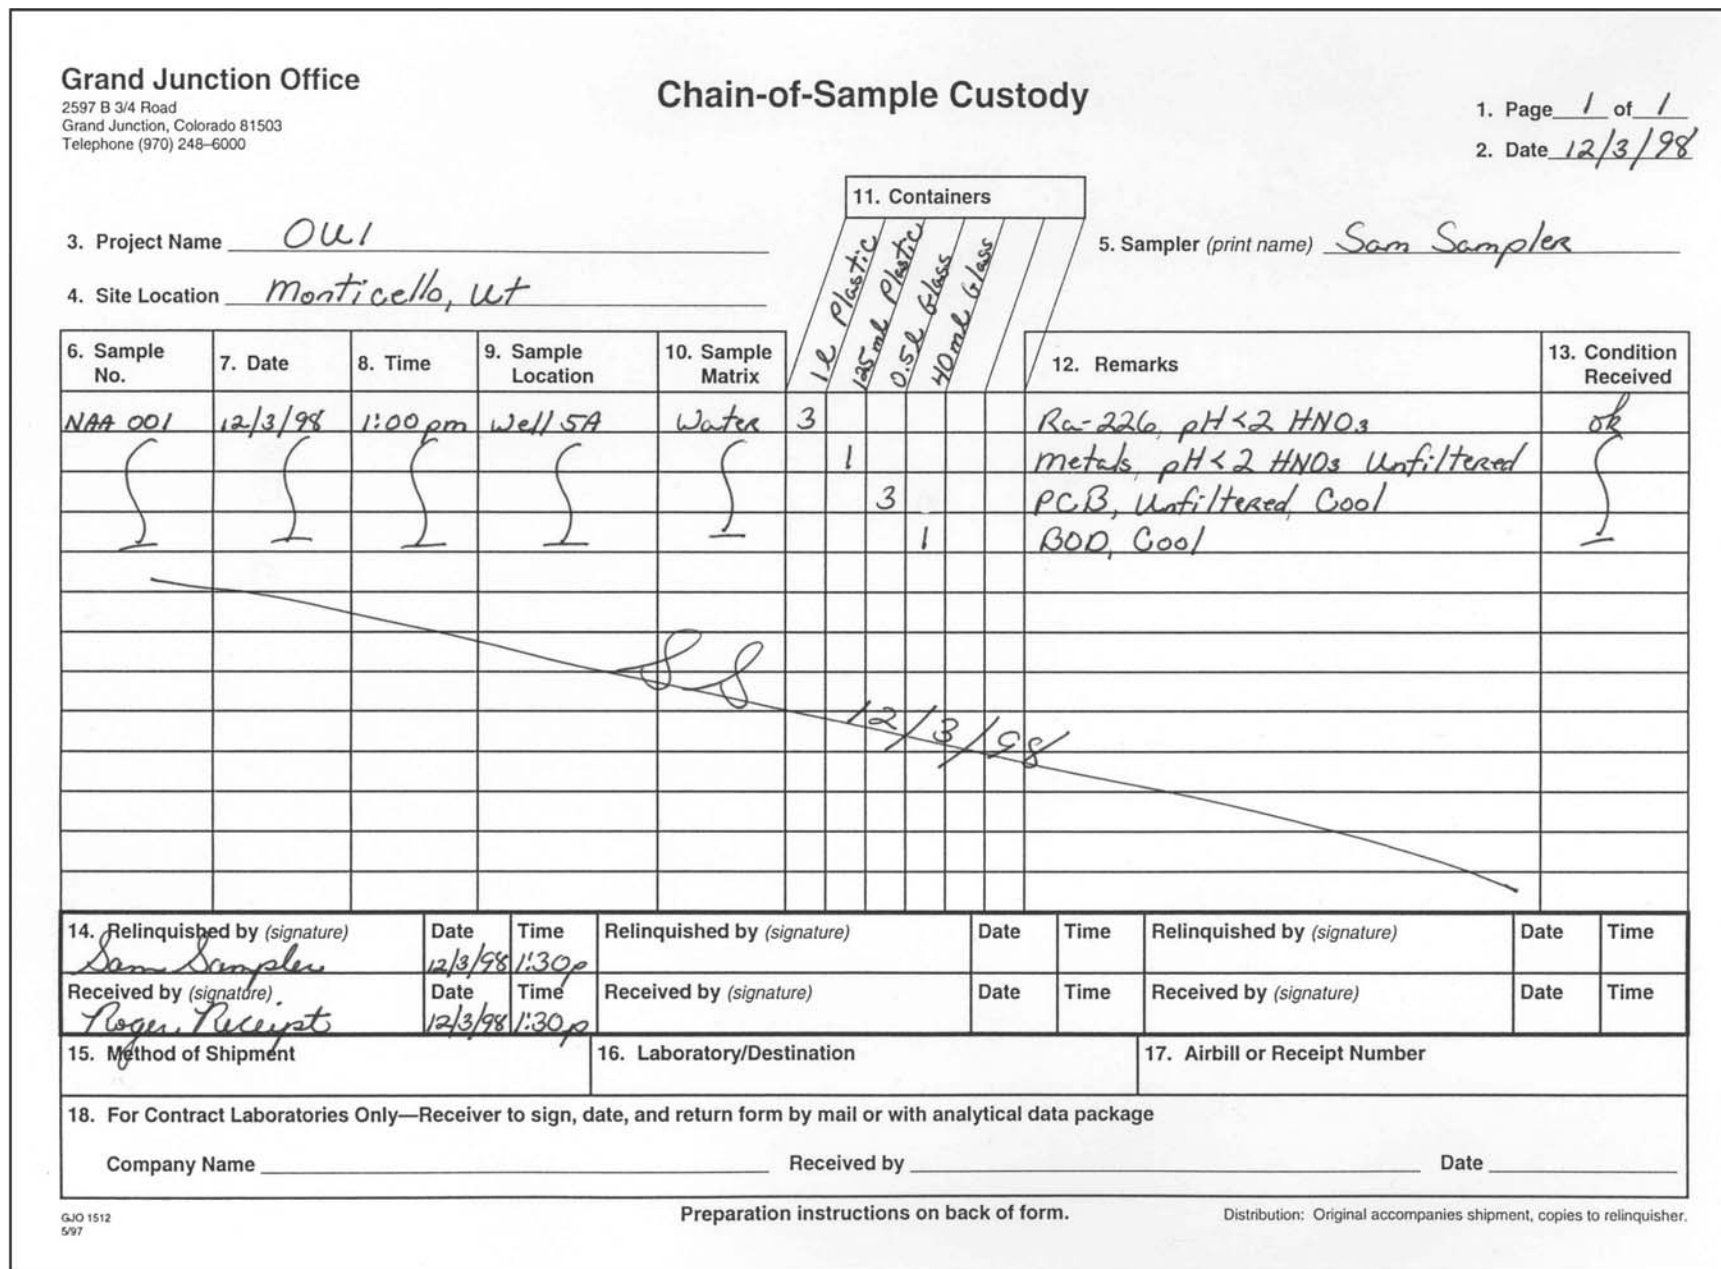 Grand Junction Office
2597 B 3/4 Road
Grand Junction, Colorado 81503
Telephone (970) 248–6000
Chain-of-Sample Custody
1. Page 1 of 1
2. Date 12/3/98
11. Containers
3. Project Name OU1
4. Site Location Monticello, Ut
5. Sampler (print name) Sam Sampler
1 l Plastic
125 ml Plastic
0.5 l Glass
40 ml Glass
6. Sample No. 7. Date 8. Time 9. Sample Location 10. Sample Matrix 12. Remarks 13. Condition Received
NAA 001 12/3/98 1:00 pm Well 5A Water 3 Ra-226, pH<2 HNO3 ok
1 metals, pH<2 HNO3 Unfiltered
3 PCB, Unfiltered, Cool
1 BOD, Cool
SS
12/3/98
14. Relinquished by (signature) Date Time Relinquished by (signature) Date Time Relinquished by (signature) Date Time
Sam Sampler 12/3/98 1:30p
Received by (signature) Date Time Received by (signature) Date Time Received by (signature) Date Time
Roger Receipt 12/3/98 1:30p
15. Method of Shipment 16. Laboratory/Destination 17. Airbill or Receipt Number
18. For Contract Laboratories Only—Receiver to sign, date, and return form by mail or with analytical data package
Company Name Received by Date
GJO 1512
5/97
Preparation instructions on back of form.
Distribution: Original accompanies shipment, copies to relinquisher.